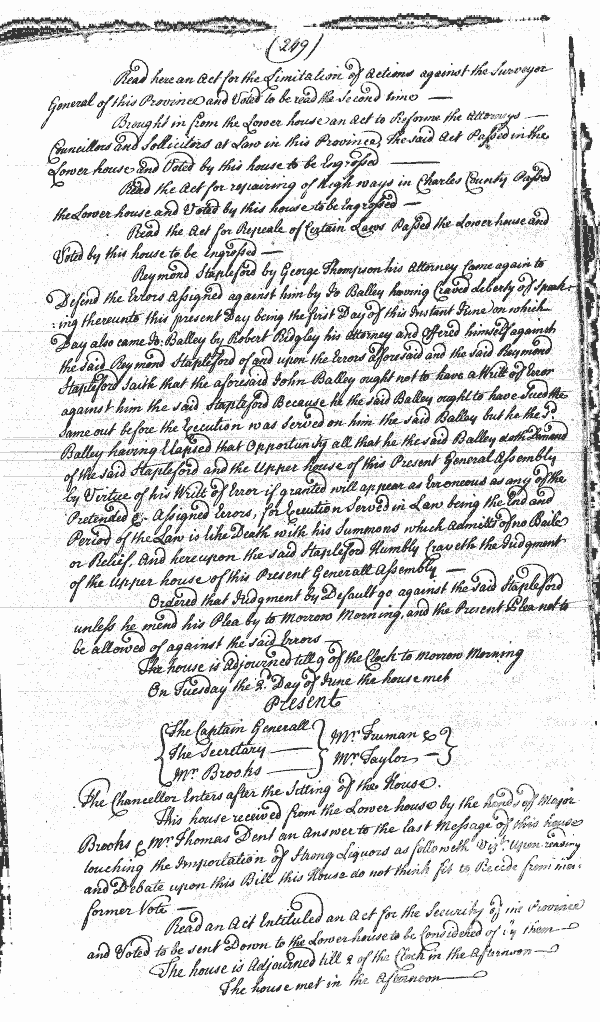 (249)
Read here an Act for the Limitation of Actions against the Surveyor
General of this Province and Voted to be read the second time —
Brought in from the Lower house an Act to Reforme the Attorneys —
Councillors and Sollicitors at Law in this Province, The said Act Passed in the
Lower house and Voted by this house to be Engrossed —
Read the Act for repairing of high ways in Charles County Passed
the Lower house and Voted by this house to be Engrossed —
Read the Act for Repeale of Certain Laws Passed the Lower house and
Voted by this house to be Engrossed —
Reymond Stapleford by George Thompson his Attorney Came again to
Defend the Errors Assigned against him by Jo Balley having Craved Liberty of Speak-
:ing thereunto this present Day being the first Day of this Instant June on which
Day also came Jo: Balley by Robert Ridgley his Attorney and offered himself against
the said Reymond Stapleford of and upon the Errors aforesaid and the said Reymond
Stapleford Saith that the aforesaid John Balley ought not to have a Writt of Error
against him the said Stapleford Because he the said Balley ought to have Sued the
Same out before the Execution was Served on him the said Balley but he the Sd.
Balley having Elapsed that Opportunity all that he the said Balley doth Demand
of the said Stapleford and the Upper house of this Present General Assembly
by Virtue of his Writt of Error if granted will appear as Erroneous as any of the
Pretended & Assigned Errors, for Execution Served in Law being the End and
Period of the Law is like Death with his Summons which Admitts of no Baile
or Relief. And hereupon the said Stapleford Humbly Craveth the Judgment
of the Upper house of this Present Generall Assembly —
Ordered that Judgment by Default go against the Said Stapleford
unless he mend his Plea by to Morrow Morning, and the Present Plea not to
be allowed of against the said Errors —
The house is Adjourned till 9 of the Clock to Morrow Morning
On Tuesday the 2d. Day of June the house met
Present
{The Captain Generall} Mr Truman &}
{The Secretary —
{Mr. Brooks —} Mr Taylor —}
The Chancellor Enters after the Sitting of the House.
This house received from the Lower house by the hands of Major
Brooks & Mr Thomas Dent an Answer to the last Message of this house
touching the Importation of Strong Liquors as followeth Vizt. Upon reading
and Debate upon this Bill this House do not think fit to Recide from their
former Vote —
Read an Act Entituled an Act for the Security of the Province
and Voted to be sent Down to the Lower house to be Considered of by them —
The house is Adjourned till 2 of the Clock in the Afternoon —
The house met in the Afternoon —